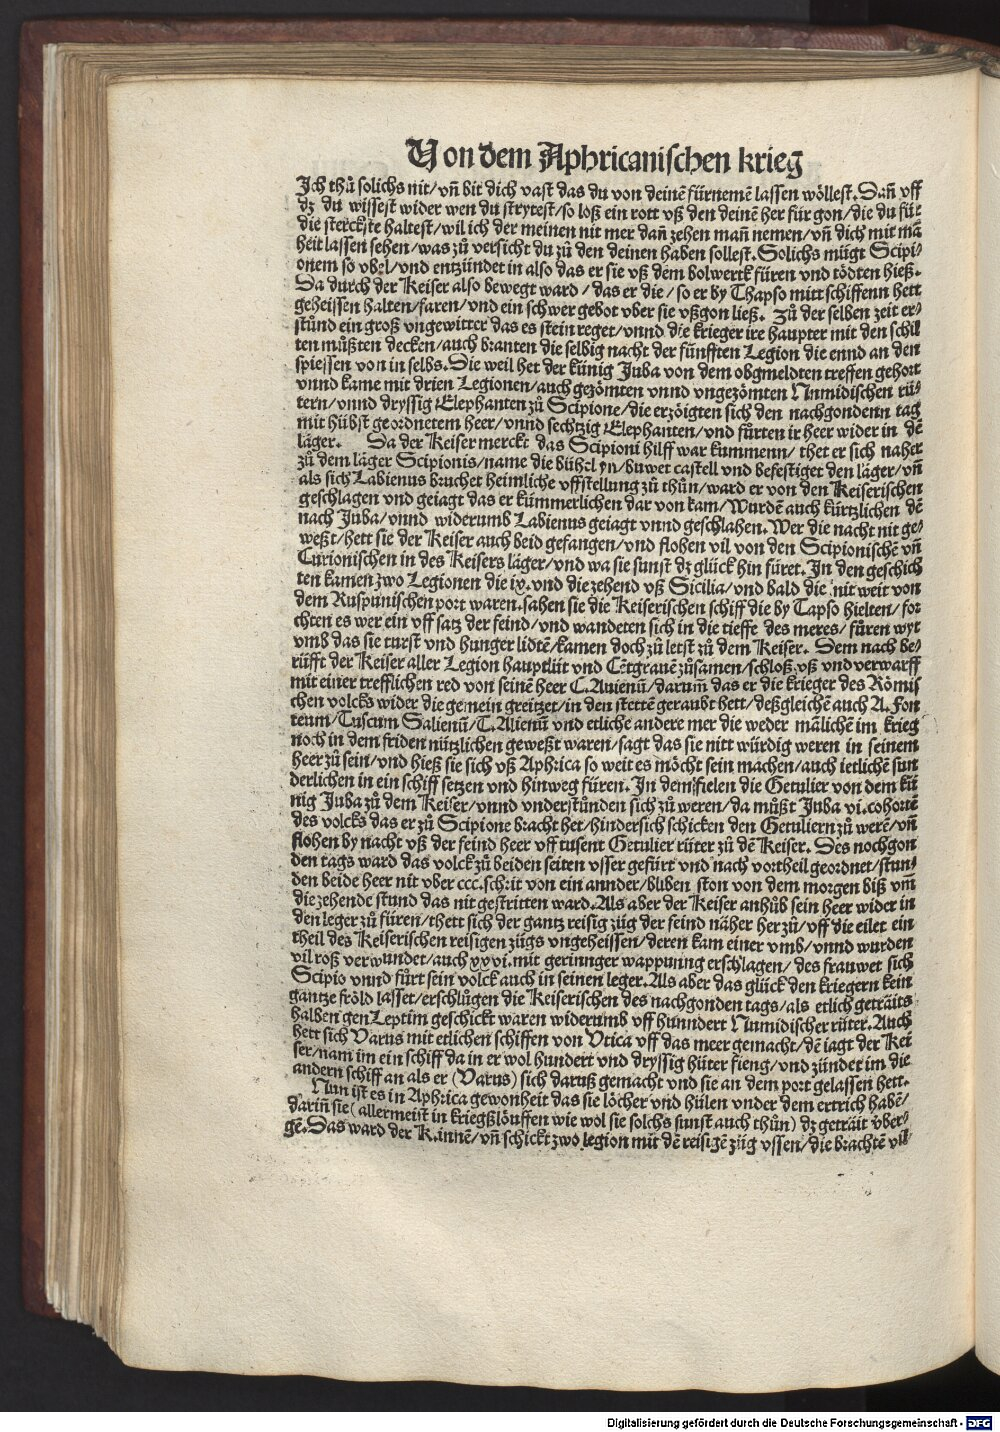 Von dem Aphricanischen krieg
Ich thů solichs nit/ vñ bit dich vast das du von deinē fürnemē lassen wöllest. Dañ vff
dz du wissest wider wen du strytest/ so loß ein rott vß den deinē her für gon/ die du für
die sterckste haltest/ wil ich der meinen nit mer dañ zehen mañ nemen/ vñ dich mit mā
heit lassen sehen/ was zů versicht du zů den deinen haben sollest. Solichs mügt Scipi⸗
onem so vbel/ vnd entzündet in also das er sie vß dem bolwerck füren vnd tödten hieß.
Da durch der Keiser also bewegt ward/ das er die/ so er by Thapso mitt schiffenn hett
geheissen halten/ faren/ vnd ein schwer gebot vber sie vßgon ließ. Zů der selben zeit er⸗
stůnd ein groß vngewitter das es stein reget/ vnnd die krieger ire haupter mit den schil
ten můßten decken/ auch branten die selbig nacht der fünfften Legion die ennd an den
spiessen von in selbs. Die weil het der künig Juba von dem obgmeldten treffen gehort
vnnd kame mit drien Legionen/ auch gezömten vnnd vngezömten Numidischen rü⸗
tern/ vnnd dryssig Elephanten zů Scipione/ die erzöigten sich den nachgondenn tag
mit hübst geordnetem heer/ vnnd sechtzig Elephanten/ vnd fůrten ir heer wider in dē
läger. Da der Keiser merckt das Scipioni hilff war kummenn/ thet er sich naher
zů dem läger Scipionis/ name die bühel yn/ buwet castell vnd befestiget den läger/ vñ
als sich Labienus bruchet heimliche vffstellung zů thůn/ ward er von den Keiserischen
geschlagen vnd geiagt das er kümmerlichen dar von kam/ Wurdē auch kürtzlichen dē
nach Juba/ vnnd widerumb Labienus geiagt vnnd geschlahen. Wer die nacht nit ge⸗
weßt/ hett sie der Keiser auch beid gefangen/ vnd flohen vil von den Scipionischē vñ
Curionischen in des Keisers läger/ vnd wa sie sunst dz glück hin füret. In den geschich
ten kamen zwo Legionen die ix. vnd die zehend vß Sicilia/ vnd bald die nit weit von
dem Ruspunischen port waren. sahen sie die Keiserischen schiff die by Tapso hielten/ for
chten es wer ein vff satz der feind/ vnd wandeten sich in die tieffe des meres/ füren wyt
vmb das sie turst vnd hunger lidtē/ kamen doch zů letst zů dem Keiser. Dem nach be⸗
růfft der Keiser aller Legion hauptlüt vnd Cētgrauē zůsamen/ schloß vß vnd verwarff
mit einer trefflichen red von seinē heer C. Auienū/ darum̄ das er die krieger des Römis
chen volcks wider die gemein greitzet/ in den stettē geraubt hett/ deßgleichē auch A. Fon
teum/ Tuscum Salienū/ T. Alienū vnd etliche andere mer die weder mālichē im krieg
noch in dem friden nützlichen geweßt waren/ sagt das sie nitt würdig weren in seinem
heer zů sein/ vnd hieß sie sich vß Aphrica so weit es möcht sein machen/ auch ietlichē sun
derlichen in ein schiff setzen vnd hinweg füren. In dem fielen die Getulier von dem kü
nig Juba zů dem Keiser/ vnnd vnderstůnden sich zů weren/ da můßt Juba vi. cohortē
des volcks das er zů Scipione bracht het/ hindersich schicken den Getuliern zů werē/ vñ
flohen by nacht vß der feind heer vff tusent Getulier rüter zů dē Keiser. Des nochgon
den tags ward das volck zů beiden seiten vsser gefürt vnd nach vortheil geordnet/ stun⸗
den beide heer nit vber ccc. schrit von ein annder/ bliben ston von dem morgen biß vm̄
die zehende stund das nit gestritten ward. Als aber der Keiser anhůb sein heer wider in
den leger zů füren/ thett sich der gantz reisig züg der feind näher her zů/ vff die eilet ein
theil des Keiserischen reisigen zügs vngeheissen/ deren kam einer vmb/ vnnd wurden
vil roß verwundet/ auch xxvi. mit geringer wappnung erschlagen/ des frauwet sich
Scipio vnnd fůrt sein volck auch in seinen leger. Als aber das glück den kriegern kein
gantze fröld lasset/ erschlůgen die Keiserischen des nachgonden tags/ als etlich geträits
halben gen Leptim geschickt waren widerumb vff hunndert Numidischer rüter. Auch
hett sich Varus mit etlichen schiffen von Vtica vff das meer gemacht/ dē iagt der Kei
ser/ nam im ein schiff da in er wol hundert vnd dryssig hüter fieng/ vnd zündet im die
andern schiff an als er (Varus) sich daruß gemacht vnd sie an dem port gelassen hett.
Nun ist es in Aphrica gewonheit das sie löcher vnd hülen vnder dem ertrich habē/
dariñ sie (allermeist in kriegßlöuffen wie wol sie solchs sunst auch thůn) dz geträit verber⸗
gē. Das ward der K. innē/ vñ schickt zwo legion mit dē reisigē züg vssen/ die brachtē vil
Digitalisierung gefördert durch die Deutsche Forschungsgemeinschaft - DFG